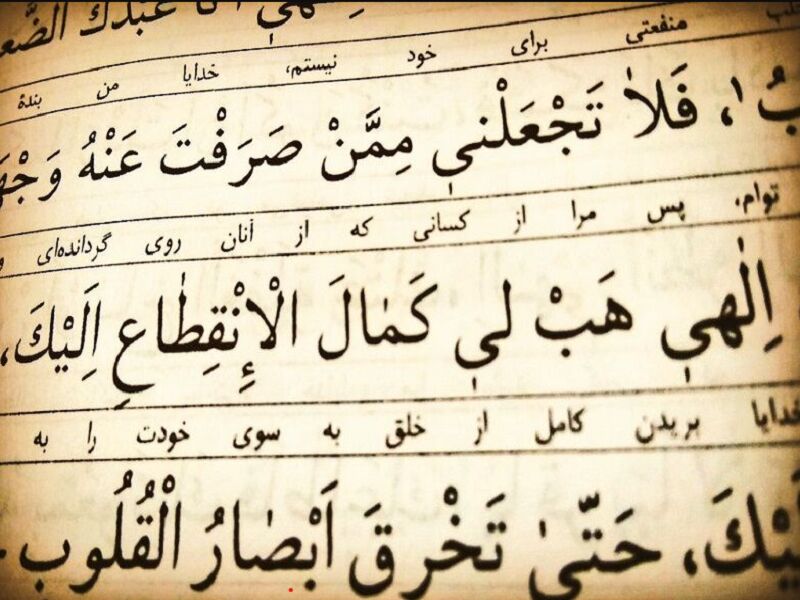 عَبْدُكَ
منفعتی برای خود نیستم، خدایا من بندهٔ
فَلاٰ تَجْعَلْنیٖ مِمَّنْ صَرَفْتَ عَنْهُ
توام، پس مرا از کسانی که از آنان روی گردانده‌ای
اِلٰهیٖ هَبْ لیٖ کَمٰالَ الْاِنْقِطٰاعِ اِلَیْکَ،
خدایا بریدن کامل از خلق به سوی خودت را به
حَتّیٰ تَخْرِقَ اَبْصٰارُ الْقُلُوبِ